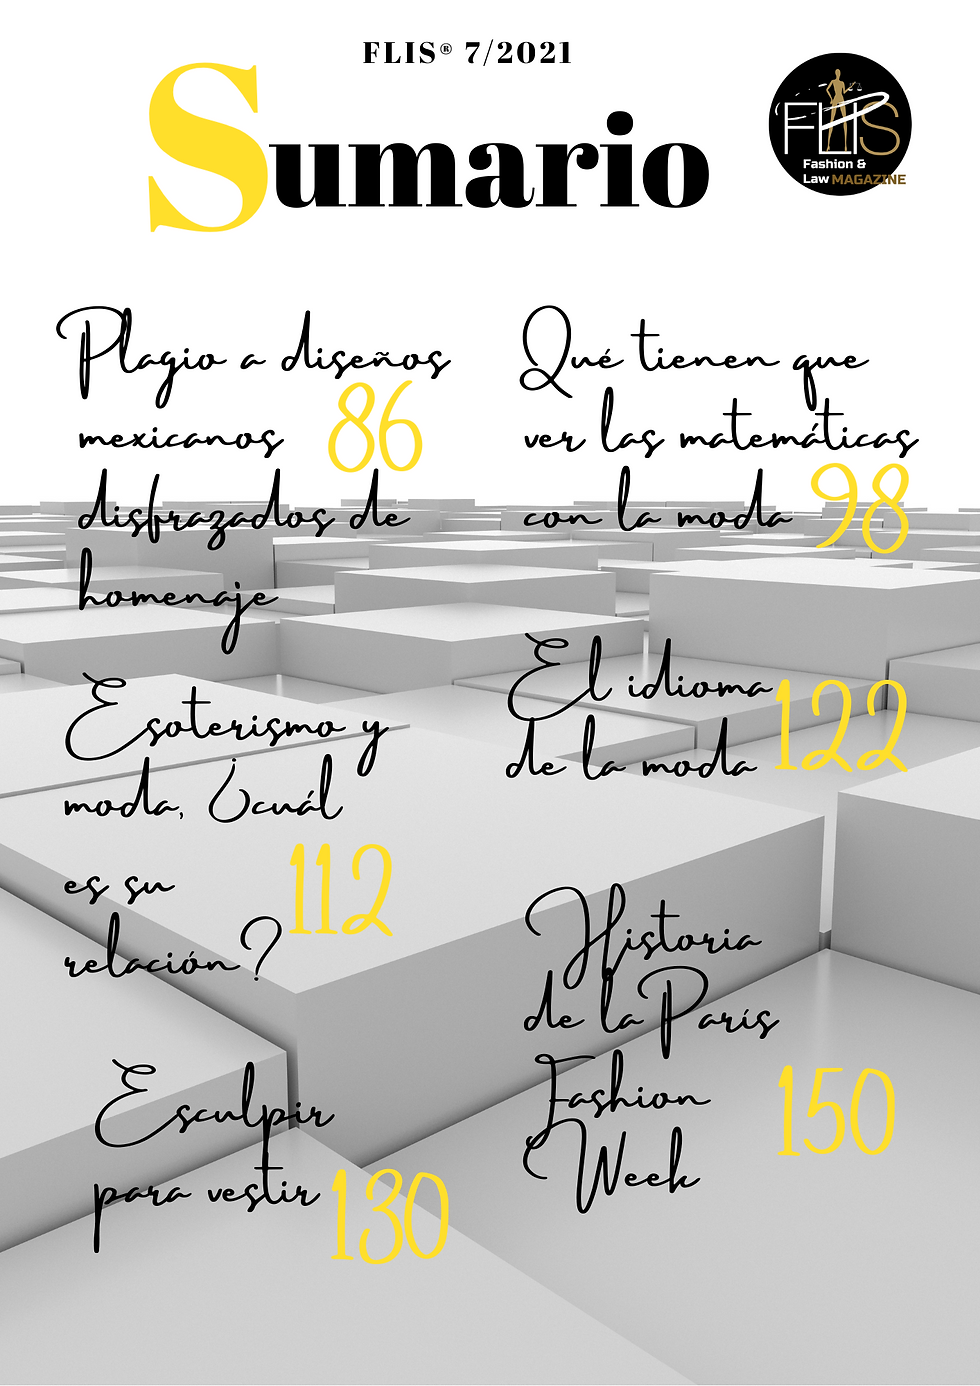 FLIS® 7/2021
Sumario
FLIS
Fashion &
Law MAGAZINE
Plagio a diseños
mexicanos 86
disfrazados de
homenaje
Qué tienen que
ver las matemáticas
con la moda 98
Esoterismo y
moda, ¿cuál
es su 112
relación?
El idioma 122
de la moda
Esculpir
para vestir 130
Historia
de la París
Fashion 150
Week